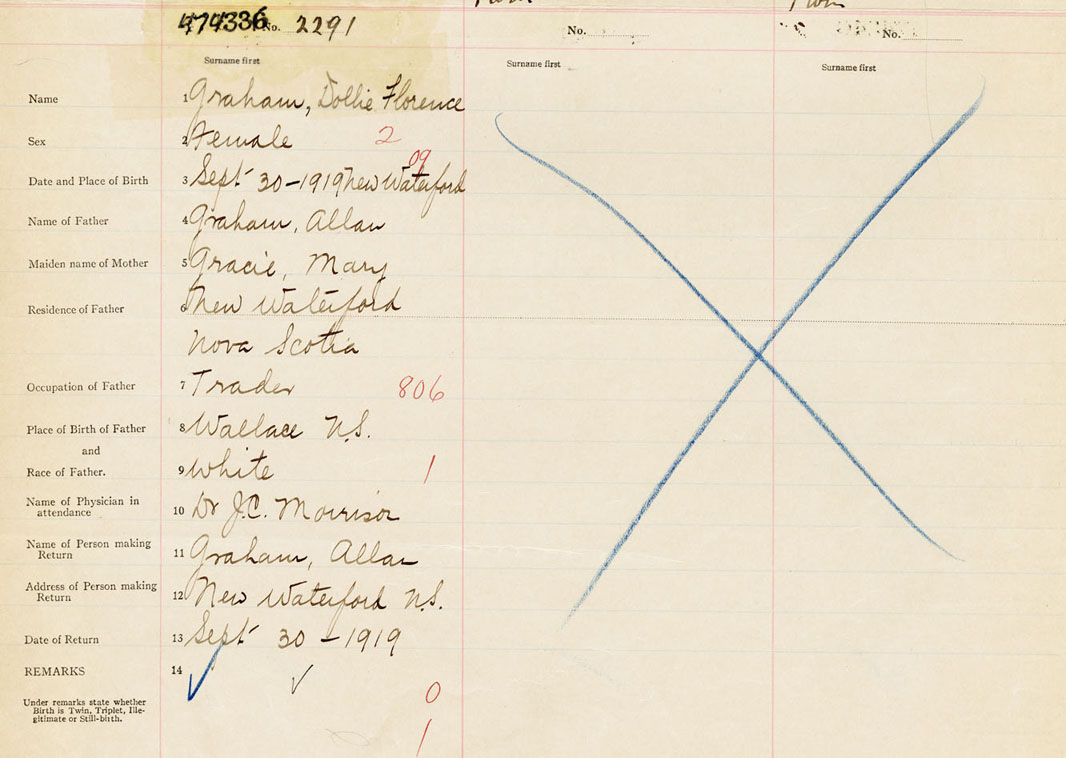 474336 No. 2291
No.
No.
Surname first
Surname first
Surname first
Name 1 Graham, Dollie Florence
Sex 2 Female 2
09
Date and Place of Birth 3 Sept 30-1919 New Waterford
Name of Father 4 Graham, Allan
Maiden name of Mother 5 Gracie, Mary
Residence of Father 6 New Waterford
Nova Scotia
Occupation of Father 7 Trader 806
Place of Birth of Father 8 Wallace N.S.
and
Race of Father. 9 White 1
Name of Physician in
attendance 10 Dr J.C. Morrison
Name of Person making
Return 11 Graham, Allan
Address of Person making
Return 12 New Waterford N.S.
Date of Return 13 Sept 30-1919
REMARKS 14
Under remarks state whether
Birth is Twin, Triplet, Ille-
gitimate or Still-birth.
0
1